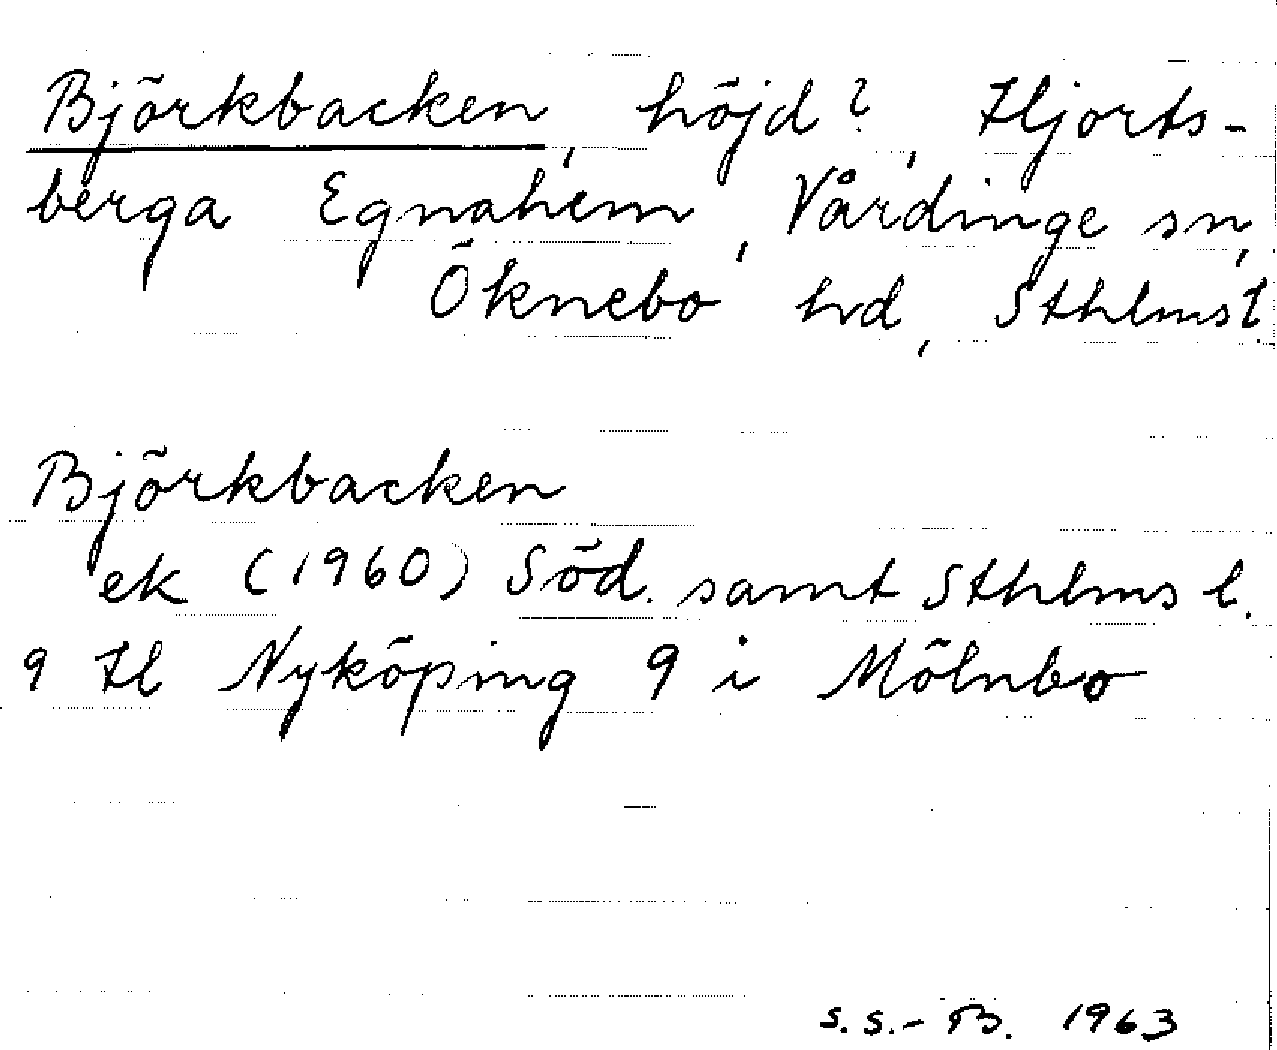 Björkbacken, höjd?, Hjorts-
berga Egnahem, Vårdinge sn,
Öknebo hd, Sthlmsl
Björkbacken
ek (1960) Söd. samt Sthlms l.
9 Hl Nyköping 9 i Mölnbo
S.S.-B. 1963